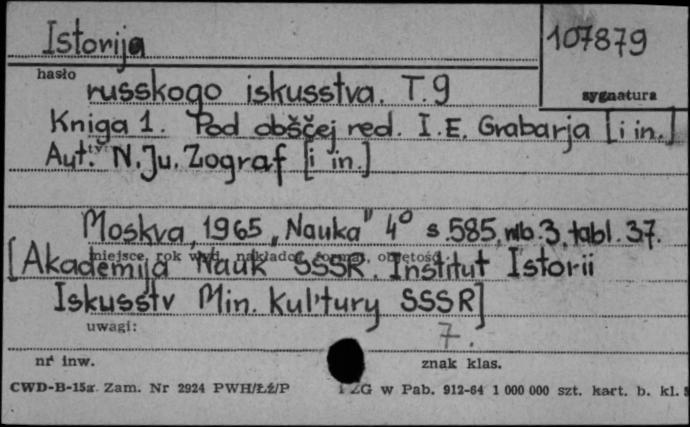 Istorija
107879
hasło
sygnatura
russkogo iskusstva. T.9
Kniga 1. Pod obščej red. I.E. Grabarja [i in.]
Aut. N.Ju. Zograf [i in.]
Moskva 1965 „Nauka" 4° s.585, nlb.3, tabl.37.
miejsce, rok wyd., nakładca, format, objętość
[Akademija Nauk SSSR. Institut Istorii
Iskusstv Min. kul'tury SSSR]
uwagi:
7.
nr inw.
znak klas.
CWD-B-15a. Zam. Nr 2924 PWH/Łź/P
ZG w Pab. 912-64 1 000 000 szt. kart. b. kl.